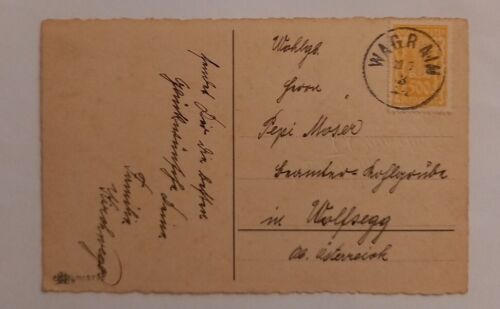 sendet Dir die besten
Glückwünsche Deine
Familie
Wohlgb.
Herrn
Pepi Moser
Beamter Kohlgrube
in Wolfsegg
Ob. Österreich
WAGRAIN
500